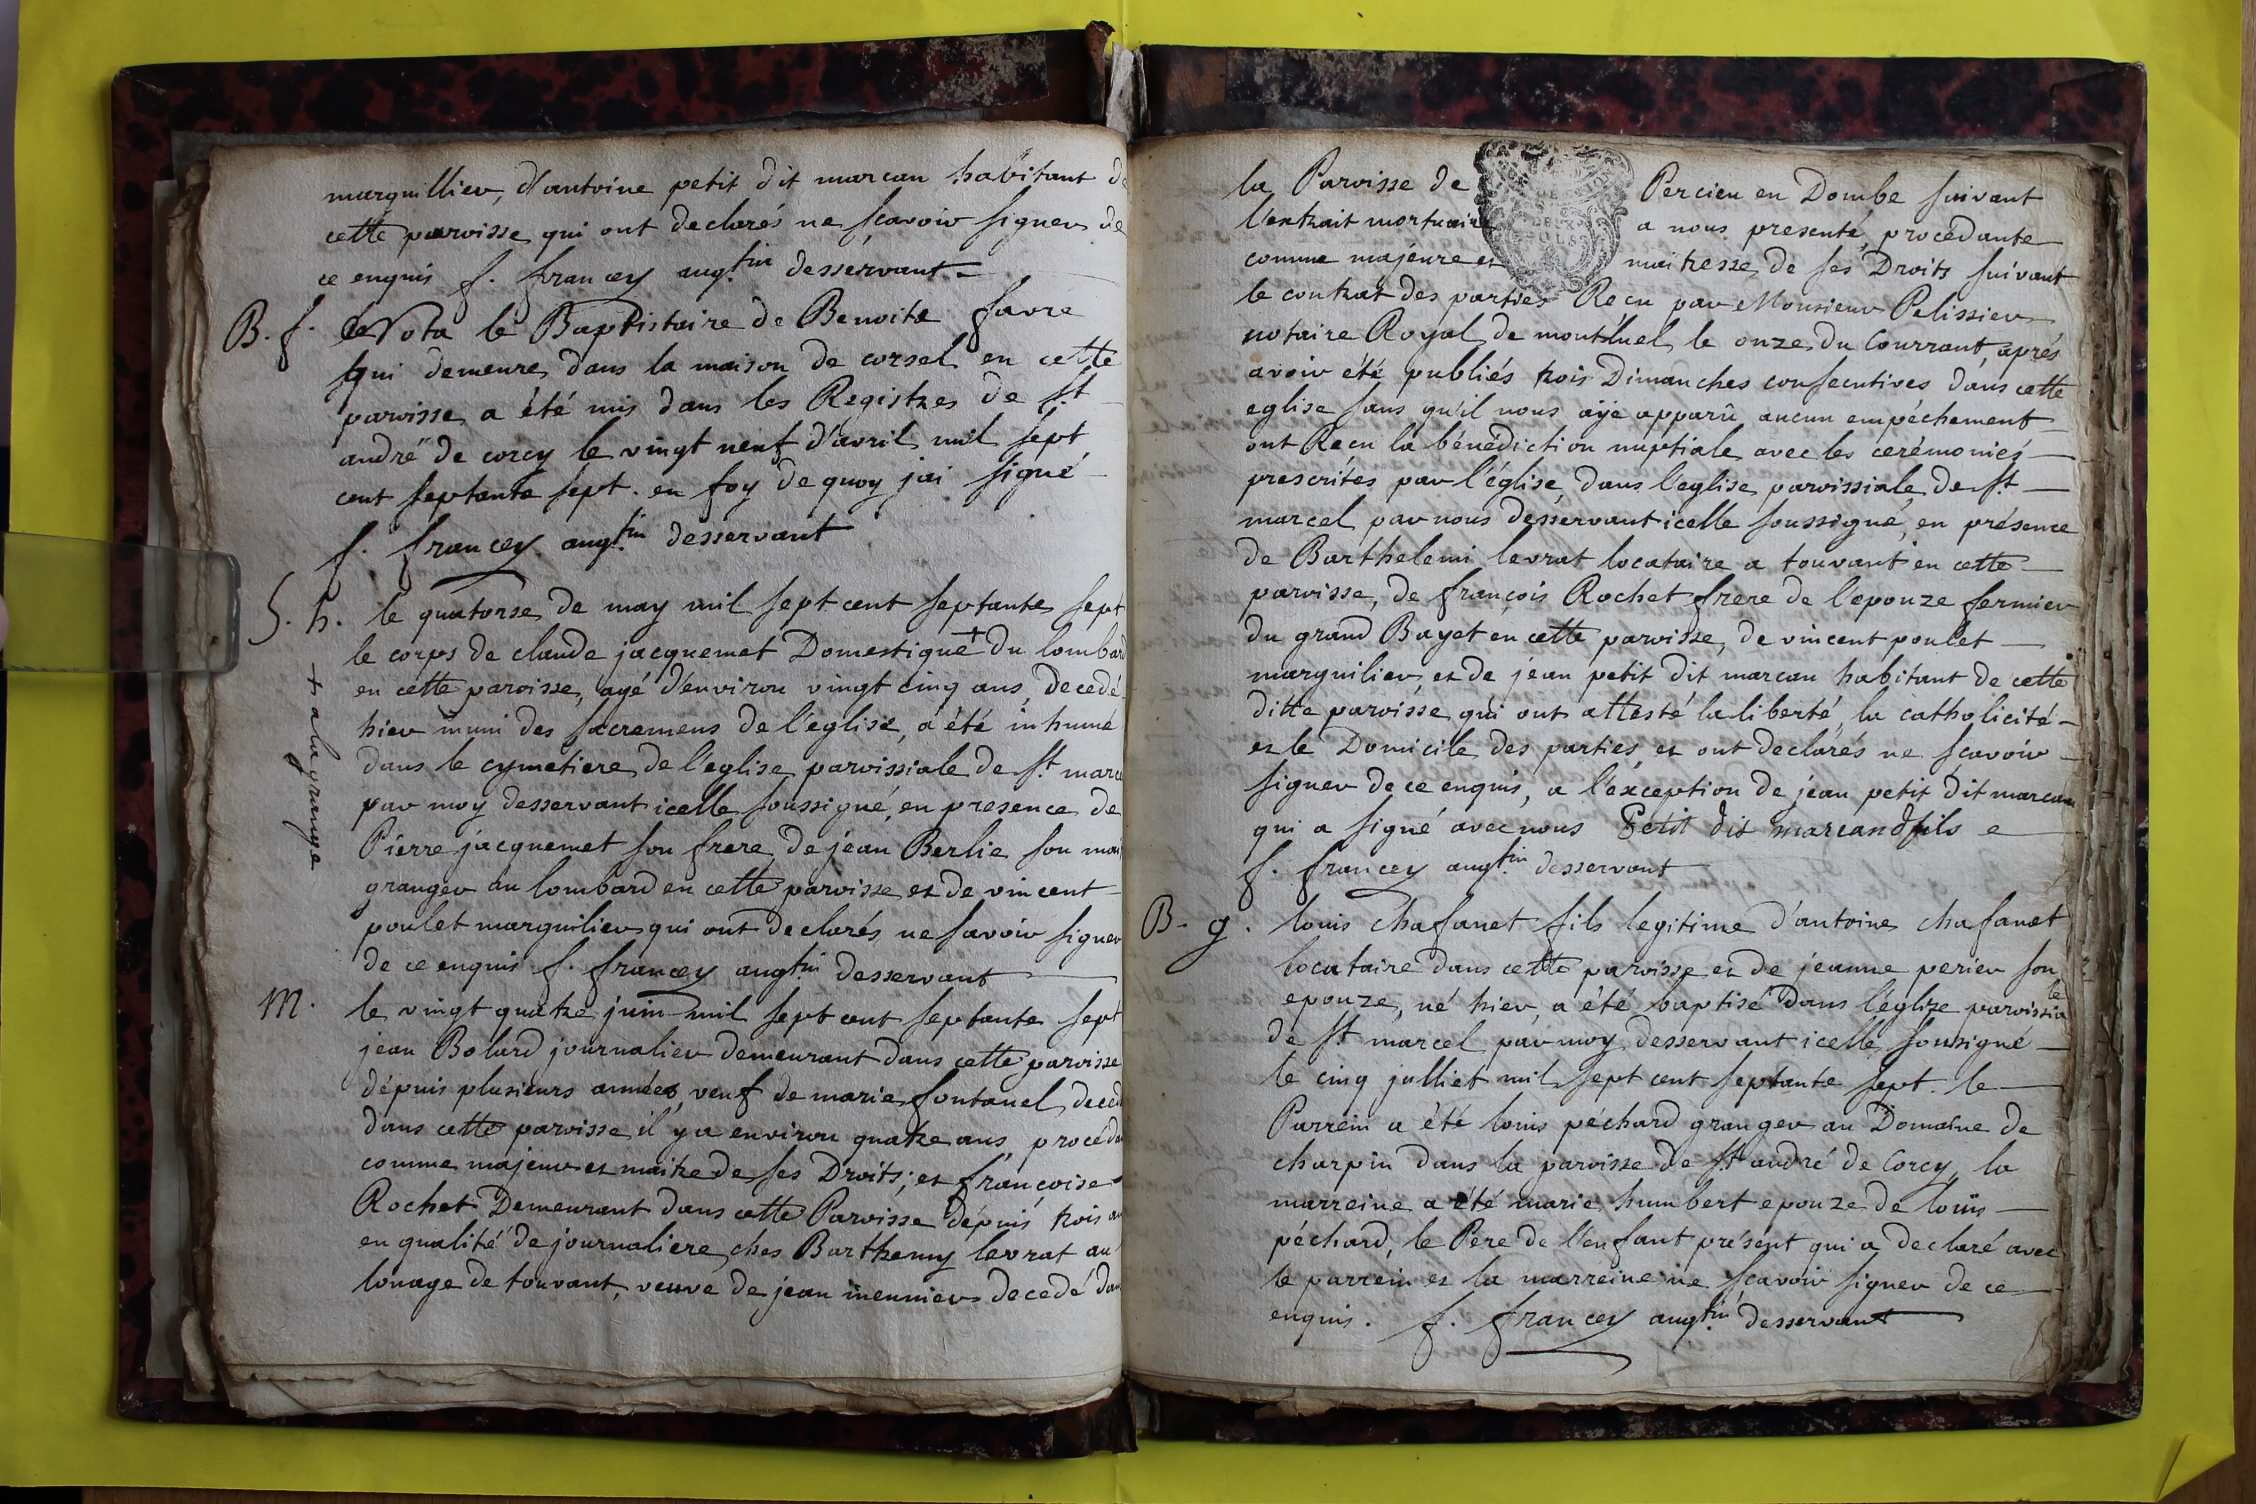 marguillier, d'antoine petit dit marcan habitant de
cette paroisse qui ont declarés ne scavoir signer de
ce enquis f. francey aug.tin desservant
B. f. Nota le Baptistaire de Benoite favre
qui demeure dans la maison de corsel en cette
paroisse a été mis dans les Registres de st
andré de corcy le vingt neuf d'avril mil sept
cent septante sept. en foy de quoy jai signé
f. francey aug.tin desservant
S. h. le quatorse de may mil sept cent septante sept
le corps de claude jacquemet Domestique + du lombard
en cette paroisse, agé d'environ vingt cinq ans, decedé
hier muni des sacremens de l'église, a été inhumé
dans le cymetiere de l'eglise paroissiale de st marce
par moy desservant icelle soussigné, en presence de
Pierre jacquemet son frere, de jean Berlie son mai
granger au lombard en cette paroisse et de vincent
poulet marguilier qui ont declarés ne savoir signer
de ce enquis f. francey aug.tin desservant
+ a la grange
M. le vingt quatre juin mil sept cent septante sept
jean Bolard journalier demeurant dans cette paroisse
dépuis plusieurs années, veuf de marie fontanel decedé
dans cette paroisse il y a environ quatre ans, procédan
comme majeur et maitre de ses Droits; et françoise
Rochet Demeurant dans cette Paroisse dépuis trois an
en qualité de journaliere ches Barthemy levrat au
louage de touvant, veuve de jean meunier decedé dan
la Paroisse de Percieu en Dombe suivant
l'extrait mortuaire a nous presenté, procédante
comme majeure et maitresse de ses Droits suivant
le contrat des parties Recu par Monsieur Pelissier
notaire Royal de montluel le onze du Courrant, aprés
avoir été publiés trois Dimanches consecutives dans cette
eglise sans qu'il nous aye apparû aucun empéchement
ont Recu la bénédiction nuptiale avec les cerémonies
prescrites par l'église, dans l'eglise paroissiale de st
marcel par nous desservant icelle soussigné, en présence
de Barthelemi levrat locataire a touvant en cette
paroisse, de françois Rochet frere de l'epouze fermier
du grand Bayet en cette paroisse, de vincent poulet
marguilier, et de jean petit dit marcan habitant de cette
ditte paroisse qui ont attesté la liberté, la catholicité
et le Domicile des parties, et ont declarés ne scavoir
signer de ce enquis, a l'exception de jean petit dit marcan
qui a signé avec nous Petit dit marcand fils
f. francey aug.tin desservant
B. g. louis chafanet fils legitime d'antoine chafanet
locataire dans cette paroisse et de jeanne perier son
epouze, né hier, a été baptisé dans l'églize paroissiale
de st marcel par moy desservant icelle sousigné
le cinq julliet mil sept cent septante sept. le
Parrein a été louis péchard granger au Domaine de
charpin dans la paroisse de st andré de Corcy, la
marreine a été marie humbert epouze de louis
péchard, le Pere de l'enfant présent qui a declaré avec
le parrein et la marreine ne scavoir signer de ce
enquis. f. francey aug.tin desservant